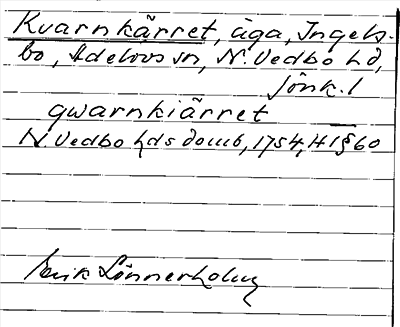 Kvarnkärret, äga, Ingels-
bo, Adelövs sn, N. Vedbo hd,
Jönk. l
qwarnkiärret
N Vedbo hds domb, 1754, H 1 § 60
Erik Lönnerholm